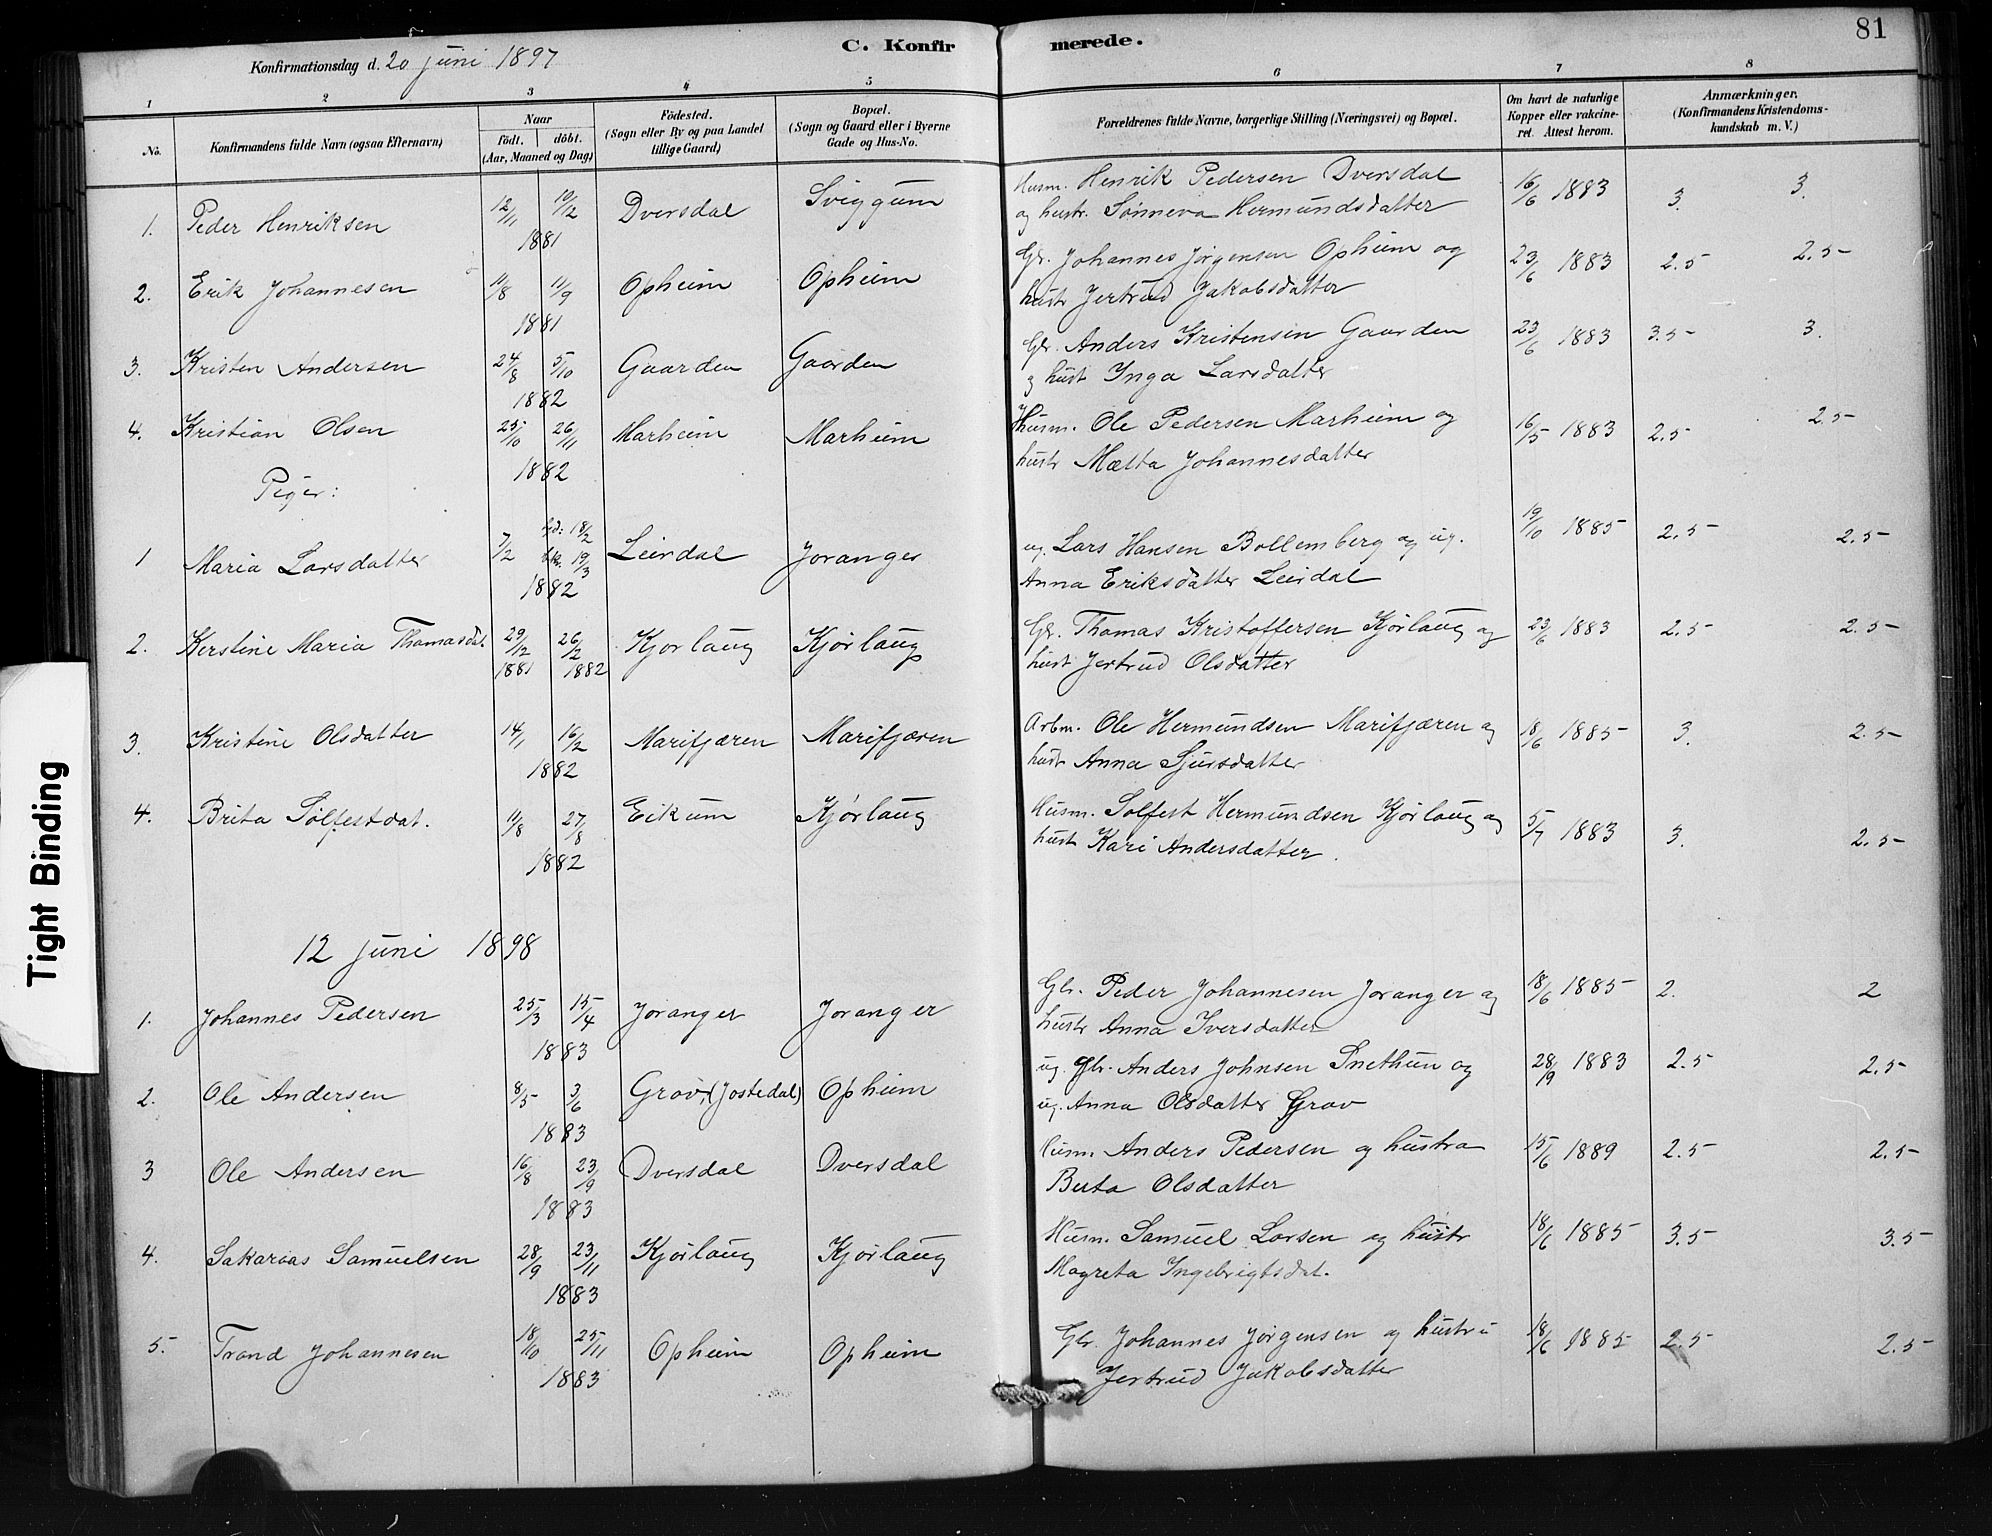 81
C. Konfirmerede.
Konfirmationsdag d. 20 juni 1897
1 2 3 4 5 6 7 8
No. Konfirmandens fulde Navn (ogsaa Efternavn) Naar födt. döbt. (Aar, Maaned og Dag) Födested. (Sogn eller By og paa Landet tillige Gaard) Bopæl. (Sogn og Gaard eller i Byerne Gade og Hus-No. Forældrenes fulde Navne, borgerlige Stilling (Næringsvei) og Bopæl. Om havt de naturlige Kopper eller vakcineret. Attest herom. Anmærkninger. (Konfirmandens Kristendomskundskab m. V.)
1. Peder Henriksen 12/11 10/12 1881 Dversdal Sviggum Husm. Henrik Pedersen Dversdal 16/6 1883 3. 3.
og hustr. Sønneva Hermundsdatter
2. Erik Johannesen 11/8 11/9 1881 Opheim Opheim Gbr. Johannes Jørgensen Opheim og 23/6 1883 2.5 2.5
hustr Jertrud Jakobsdatter
3. Kristen Andersen 24/8 5/10 1882 Gaarden Gaarden Gbr. Anders Kristensen Gaarden 23/6 1883 3.5 3.
og hust Inga Larsdatter
4. Kristian Olsen 25/10 26/11 1882 Marheim Marheim Husm. Ole Pedersen Marheim og 16/5 1883 2.5 2.5
hustr Mætta Johannesdatter
Piger:
1 Maria Larsdatter 7/2 18/2 19/3 1882 Leirdal Joranger ug. Lars Hansen Bollemberg og ug. 19/10 1885 2.5 2.5
Anna Eriksdatter Leirdal
2. Kerstine Maria Thomasdat. 29/12 1881 26/2 1882 Kjørlaug Kjørlaug Gbr. Thomas Kristoffersen Kjørlaug og 23/6 1883 2.5 2.5
hust Jertrud Olsdatter
3. Kristine Olsdatter 14/1 16/2 1882 Marifjæren Marifjæren Arbm. Ole Hermundsen Marifjæren og 18/6 1885 3. 2.5
hustr Anna Sjursdatter
4. Brita Solfestdat. 11/8 27/8 1882 Eikum Kjørlaug Husm. Solfest Hermundsen Kjørlaug og 5/7 1883 3. 2.5
hust Kari Andersdatter.
12 juni 1898
1. Johannes Pedersen 25/3 15/4 1883 Joranger Joranger Gbr. Peder Johannesen Joranger og 18/6 1885 2. 2
hustr Anna Iversdatter
2. Ole Andersen 8/5 3/6 1883 Grov, (Jostedal) Opheim ug. gbr. Anders Johnsen Snethun og 28/9 1883 2.5 2.5
ug. Anna Olsdatter Grov
3 Ole Andersen 16/8 23/9 1883 Dversdal Dversdal Husm. Anders Pedersen og hustru 15/6 1889 2.5 2.5
Berta Olsdatter
4. Sakarias Samuelsen 28/9 23/11 1883 Kjørlaug Kjørlaug Husm. Samuel Larsen og hustr 18/6 1885 3.5 3.5
Magreta Ingebrigtsdat.
5. Trond Johannesen 18/10 25/11 1883 Opheim Opheim Gbr. Johannes Jørgensen og hustru 18/6 1885 2.5 2.5
Jertrud Jakobsdatter
Tight Binding